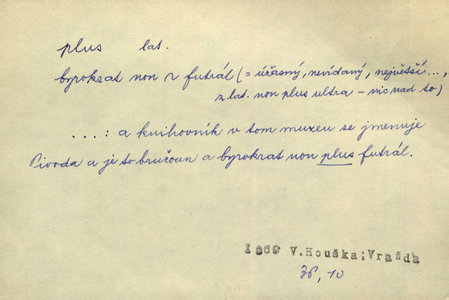 plus lat.
byrokrat non r futrál (= úžasný, nevídaný, největší...,
z lat. non plus ultra – víc nad to)
....: a knihovník v tom muzeu se jmenuje
Pivoda a je to bručoun a byrokrat non plus futrál.
V. Houška; Vražda
10